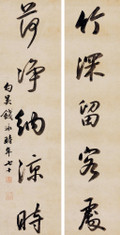 竹深留客處
荷净納涼時
句吳錢泳時年七十